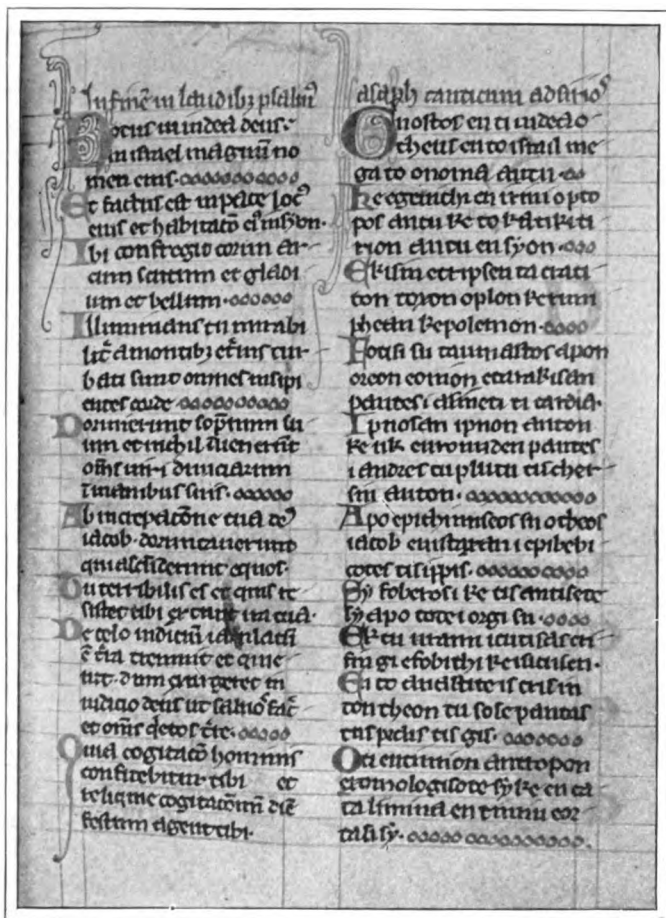 In finē in laudibȝ psalm⁹
Notus in iudea deus·
in israel magnū no
men eius·
Et factus est in pace loc⁹
eius et habitatō ei⁹ in syon·
Ibi confregit cornu ar
cum scutum et gladi
um et bellum·
Illuminans tu mirabi
lit̄ a montibȝ et̄nis tur
bati sunt omnes insipi
entes corde
Dormierunt sopnum su
um et nichil īuenerūt
om̄s uiri diuiciarum
ī manibus suis·
Ab increpacōne tua de⁹
iacob· dormitauerunt
qui ascēderunt equos·
Tu terribilis es et quis re
sistet tibi ex tunc ira tua·
De celo iudiciū
ē t̄ra tremuit et quie
uit· dum exurgeret in
iudicio deus ut saluos fac̄
et om̄s q̄etos t̄re·
Quia cogitatō hominis
confitebitur tibi et
relique cogitacōnū diē
festum agent tibi·
asaph canticum ad sirios
Gnostos en ti iudea o
theus en to israil me
ga to onoma autu·
Ke egenithi en irini o to
pos autu ke to katikiti
rion autu en syon·
Eki sinetripsen ta crati
ton toxon oplon ke rum
phean ke polemon·
Fotisi su taumastos apon
oreon eonion etarakisan
pantes i asineti ti cardia·
Ipnosan ipnon auton
ke uk euron uden pantes
i andres tu plutu tis cher
sin auton·
Apo epithimiseos su o theos
iacob enistaxan i epibebi
cotes tis ippis·
Sy foberos i ke tis antisete
sy apo tote i orgi su·
Ek tu uranu icutisas cri
sin gi efobithi ke isicasen·
En to anastite is crisin
ton theon tu sose pantas
tus
Oti entimion antropon
exomologisete sy ke en ca
ta limma entimiu eor
tasi sy·